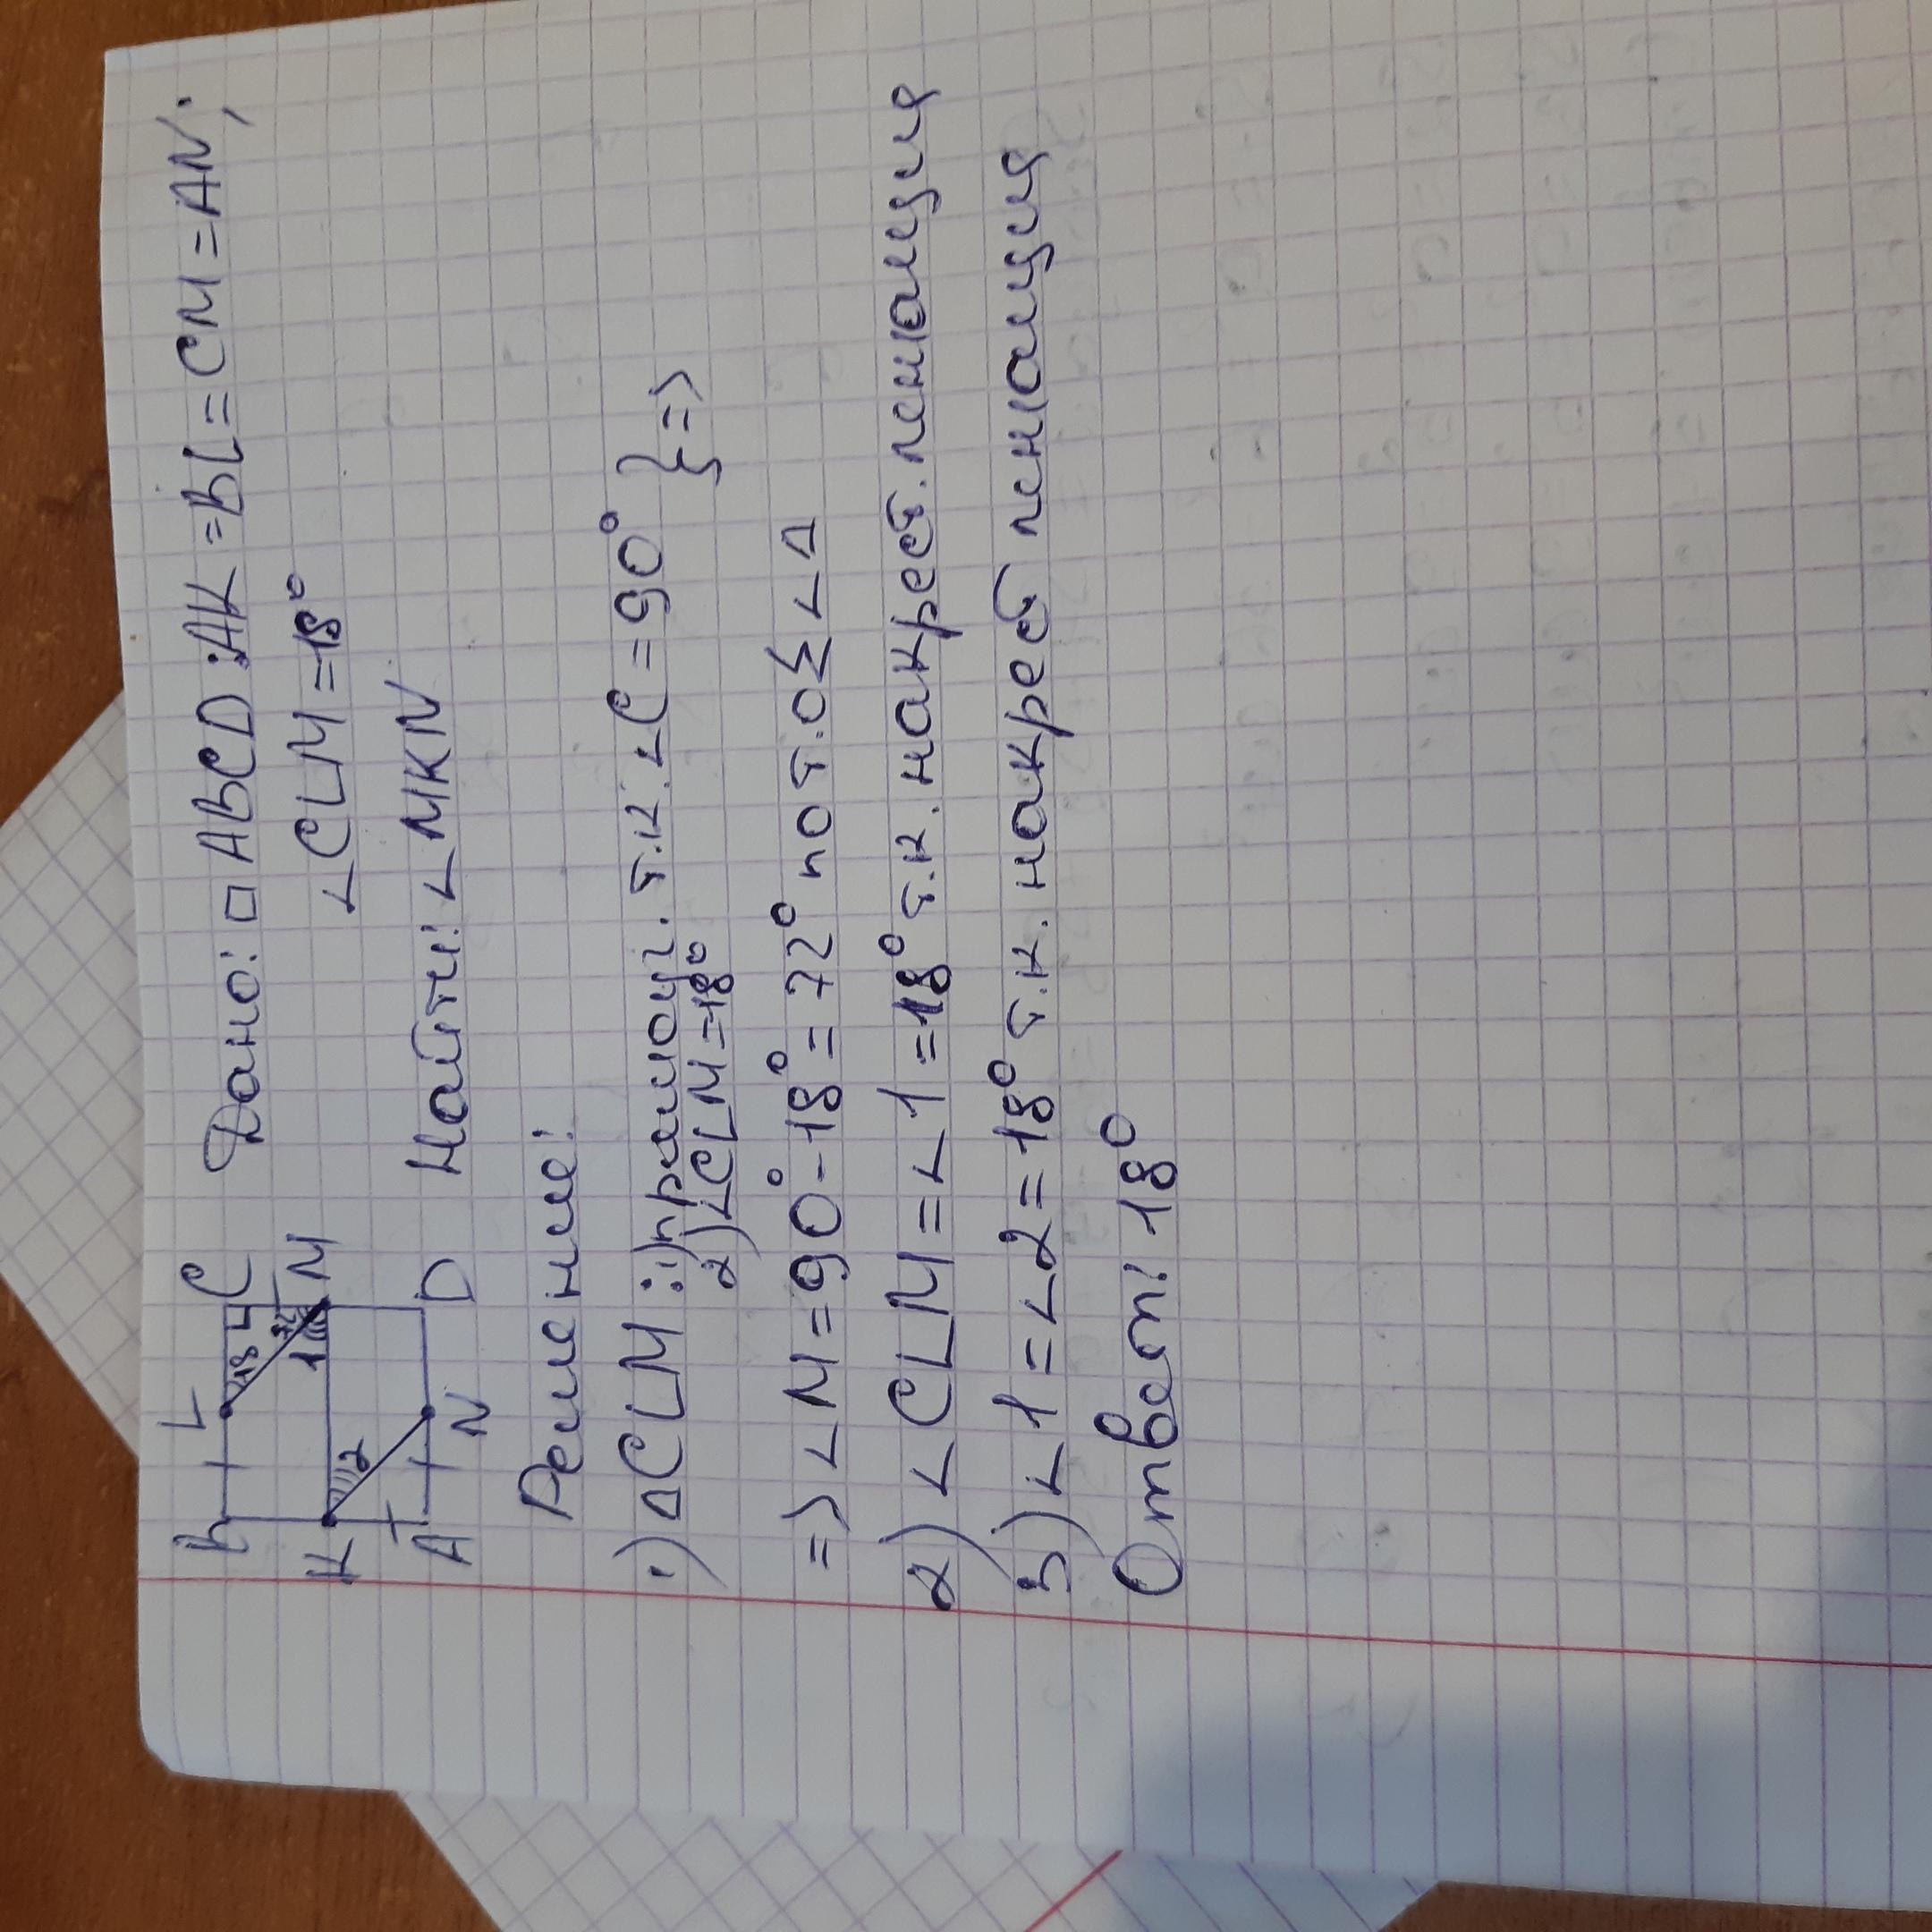 B L C
18
К 1 M
2
A N D
Дано: □ ABCD: AK = BL = CM = AN;
∠CLM = 18°
Найти: ∠MKN
Решение:
1) ΔCLM: 1) прямоуг. т.к. ∠C = 90° } =>
2) ∠CLM = 18°
=> ∠M = 90° - 18° = 72° по т. о Σ ∠Δ
2) ∠CLM = ∠1 = 18° т.к. накрест. лежащия
3) ∠1 = ∠2 = 18° т.к. накрест лежащия
Ответ: 18°